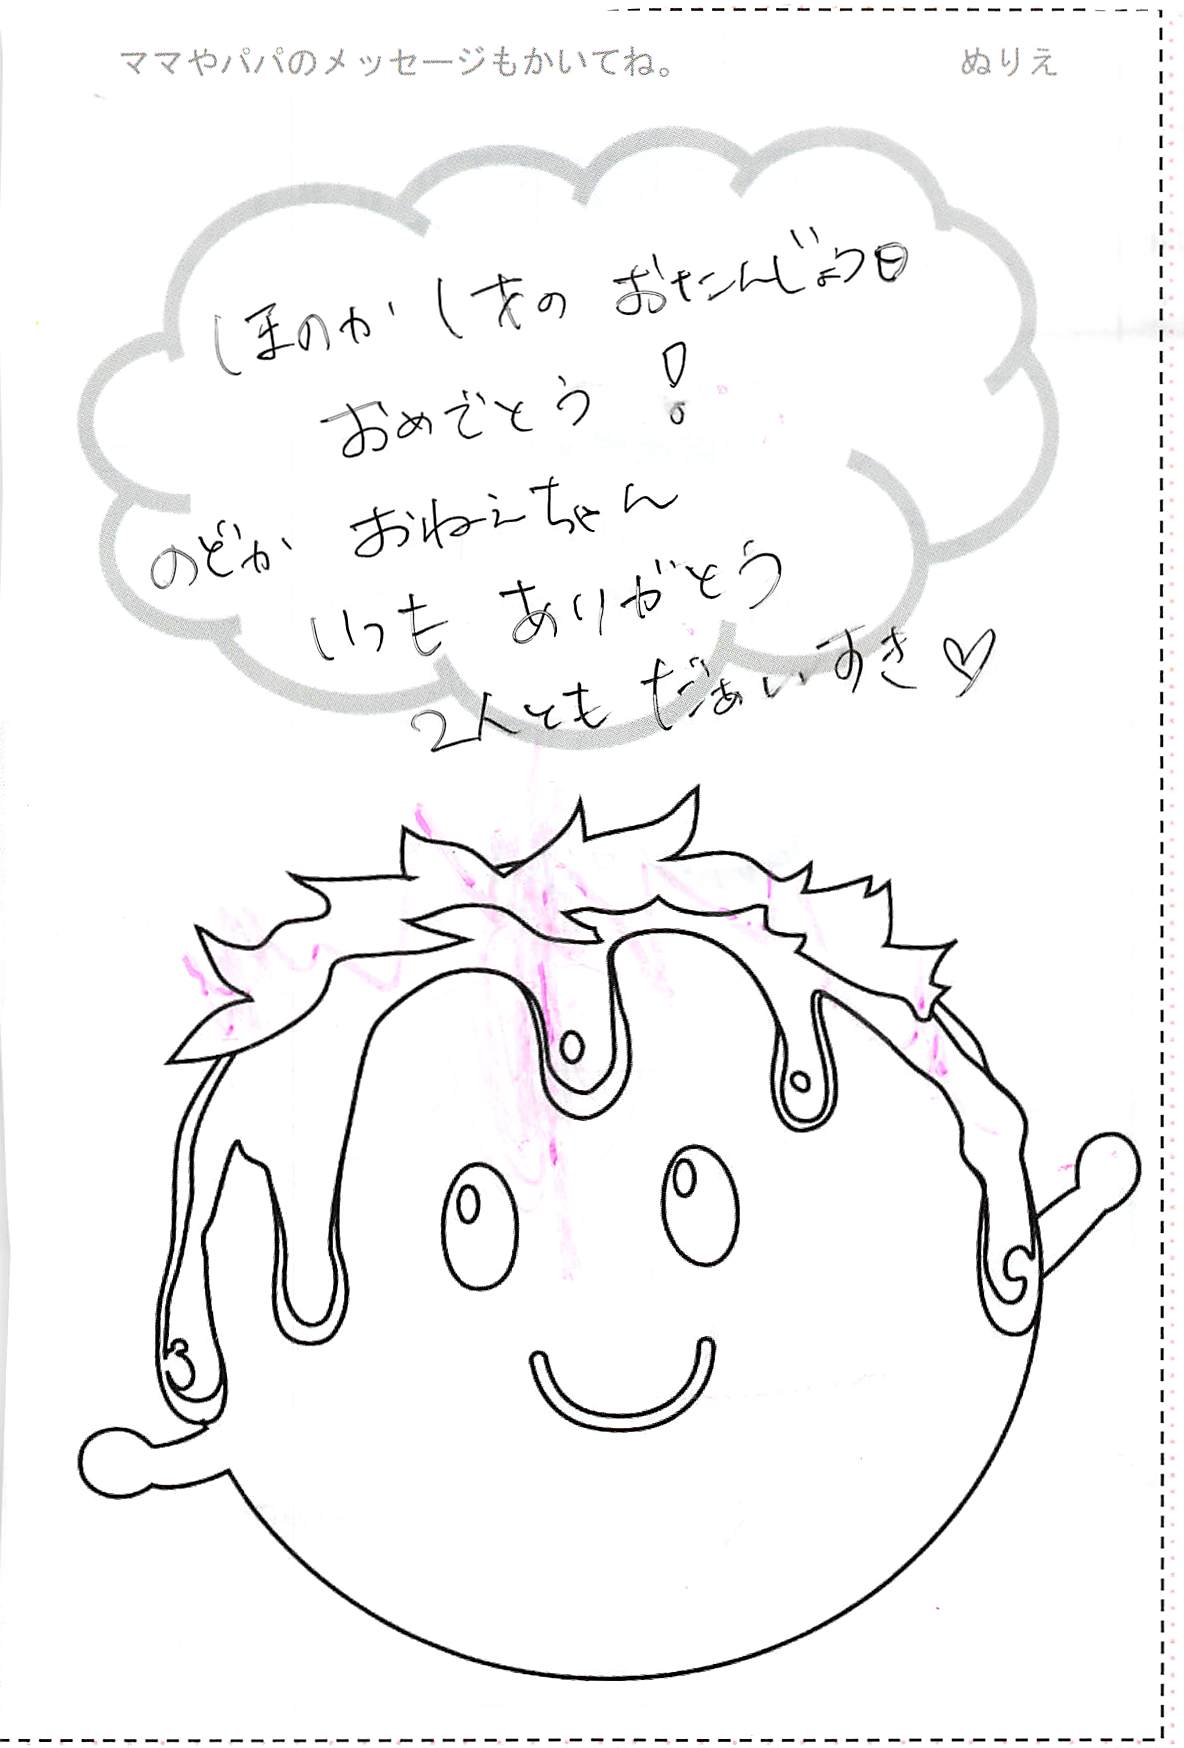 ママやパパのメッセージもかいてね。 ぬりえ
ほのか 1才の おたんじょう日
おめでとう!
のどか おねえちゃん
いつも ありがとう
2人とも だぁいすき♡